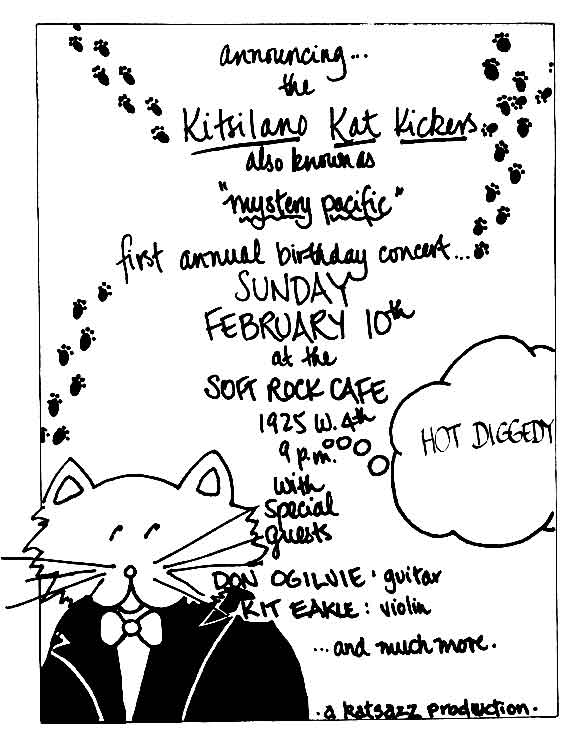 announcing...
the
Kitsilano Kat Kickers
also known as
"mystery pacific"
first annual birthday concert...
SUNDAY
FEBRUARY 10th
at the
SOFT ROCK CAFE
1925 W. 4th
9 p.m.
with
special
guests
HOT DIGGEDY
DON OGILVIE: guitar
KIT EAKLE: violin
...and much more.
·a katsazz production·